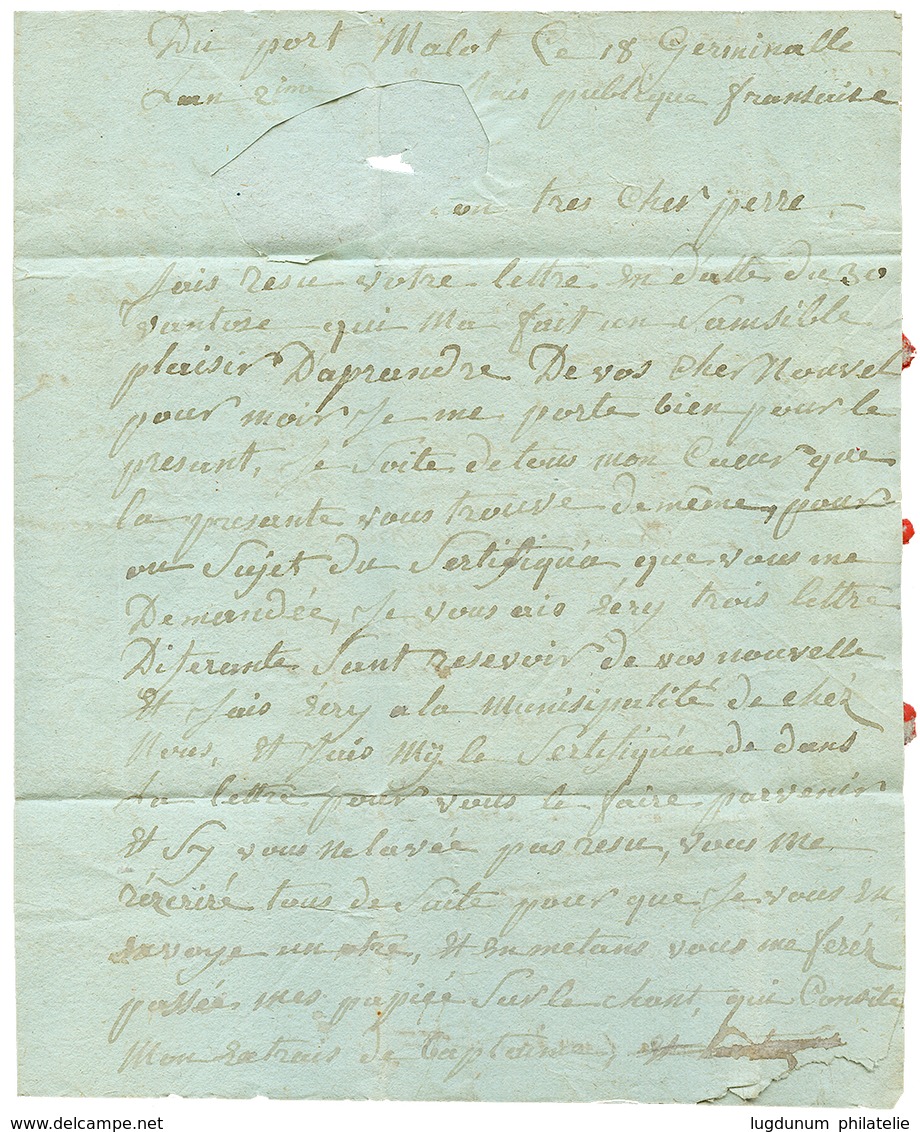 Du port Malot Ce 18 Germinalle
Lan 2ime publique fransaise
on tres Cher perre
Jais resu votre lettre En datte du 30
vantose qui Ma fait un Samsible
plaisir Daprandre De vos Cher Nouvel
pour moir Je me porte bien pour le
presant, Je Soite de tous mon Cueur que
la presante vous trouve de même, pour
ou Sujet du Sertifiqúa que vous me
Demandée, Je vous ais Écry trois lettre
Diferante Sant resevoir de vos nouvelle
Et Jais Écry a la Munisipalité de chér
Nous, Et Jais My le Sertifiqúa de dans
La lettre pour vous le faire parvenir
Et Sy vous ne lavée pas resu, vous me
récriré tous de Suite pour que Je vous En
Envoye un otre, Et En metans vous me ferér
passée mes papiée Sur le chant, qui Consite
Mon Extrais de Baptaime
lugdunum philatelie
www.delcampe.net